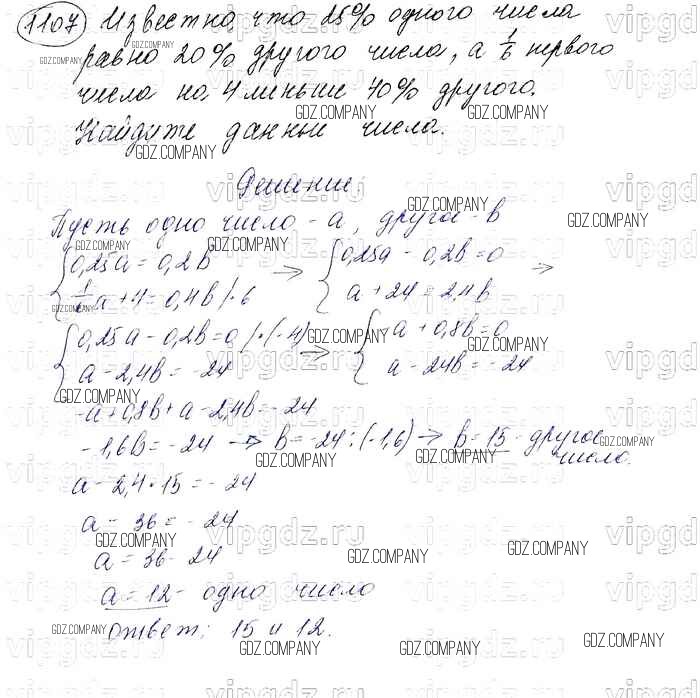 1107 Известно, что 25% одного числа
равно 20% другого числа, а 1/6 первого
числа на 4 меньше 40% другого.
Найдите данные числа.
Решение:
Пусть одно число - a, другое - b
{0,25a = 0,2b → {0,25a - 0,2b = 0 →
{1/6a + 4 = 0,4b |·6 {a + 24 = 2,4b
{0,25a - 0,2b = 0 |·(-4) → {-a + 0,8b = 0
{a - 2,4b = -24 {a - 24b = -24
-a + 0,8b + a - 2,4b = -24
-1,6b = -24 → b = -24 : (-1,6) → b = 15 - другое
число.
a - 2,4·15 = -24
a - 36 = -24
a = 36 - 24
a = 12 - одно число
Ответ: 15 и 12.
GDZ.COMPANY
vipgdz.ru